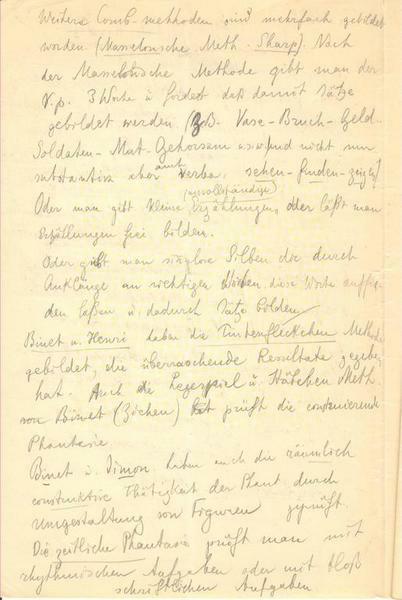 Weitere Comb-methoden sind mehrfach gebildet
worden (Masselonsche Meth. Sharp). Nach
der Masselonsche Methode gibt man der
V.p. 3 Worte u fordert daß damit Sätze
gebildet werden (z.B. Vase-Bruch-Geld-
Soldaten-Mut-Gehorsam u.s.w) und nicht nur
substantiva aber auch verba, sehen-finden-zeigen)
Oder man gibt kleine (unvollständige) Erzählungen, oder läßt man
Erzählungen frei bilden.
Oder gibt man sinnlose Silben die durch
Anklänge an richtigen Worten, diese Worte auffin-
den laßen u. dadurch Sätze bilden
Binet u. Henri haben die Tintenfleckchen Methode
gebildet, die überraschende Resultate gegeben
hat. Auch die u. Meth.
von Binet (Ziehen) prüft die construierende
Phantasie.
Binet u. Simon haben auch die räumlich
construktive Thätigkeit der Phant. durch
Umgestaltung von Figuren geprüft.
Die zeitliche Phantasie prüft man mit
rhythmischen Aufgaben oder mit bloß
schriftlichen Aufgaben.